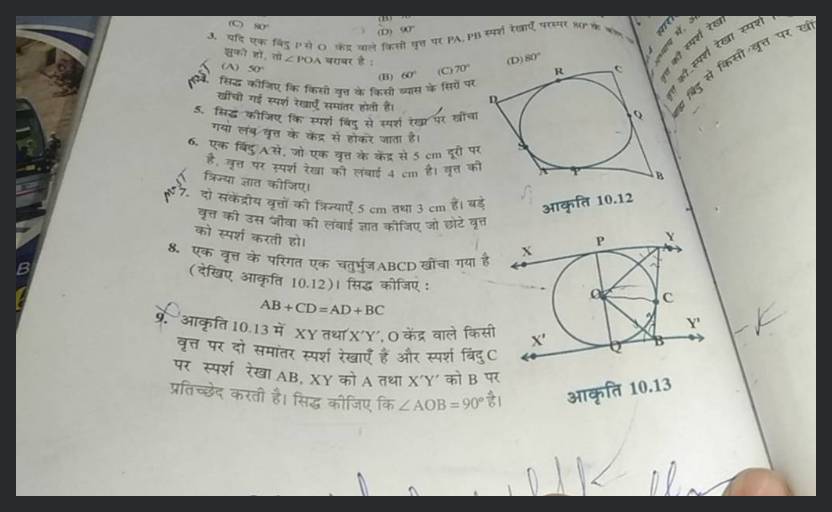 (C) 80°
(D) 90°
3. यदि एक बिंदु P से O केंद्र वाले किसी वृत्त पर PA, PB स्पर्श रेखाएँ परस्पर 80° के
झुकी हों, तो ∠POA बराबर है :
(A) 50° (B) 60° (C) 70° (D) 80°
4. सिद्ध कीजिए कि किसी वृत्त के किसी व्यास के सिरों पर
खींची गई स्पर्श रेखाएँ समांतर होती हैं।
5. सिद्ध कीजिए कि स्पर्श बिंदु से स्पर्श रेखा पर खींचा
गया लंब वृत्त के केंद्र से होकर जाता है।
6. एक बिंदु A से, जो एक वृत्त के केंद्र से 5 cm दूरी पर
है, वृत्त पर स्पर्श रेखा की लंबाई 4 cm है। वृत्त की
त्रिज्या ज्ञात कीजिए।
7. दो संकेंद्रीय वृत्तों की त्रिज्याएँ 5 cm तथा 3 cm हैं। बड़े
वृत्त की उस जीवा की लंबाई ज्ञात कीजिए जो छोटे वृत्त
को स्पर्श करती हो।
8. एक वृत्त के परिगत एक चतुर्भुज ABCD खींचा गया है
(देखिए आकृति 10.12)। सिद्ध कीजिए :
AB + CD = AD + BC
9. आकृति 10.13 में XY तथा X'Y', O केंद्र वाले किसी
वृत्त पर दो समांतर स्पर्श रेखाएँ हैं और स्पर्श बिंदु C
पर स्पर्श रेखा AB, XY को A तथा X'Y' को B पर
प्रतिच्छेद करती है। सिद्ध कीजिए कि ∠AOB = 90° है।
R C
D
Q
S
A P B
आकृति 10.12
X P Y
O C
X' Q B Y'
आकृति 10.13